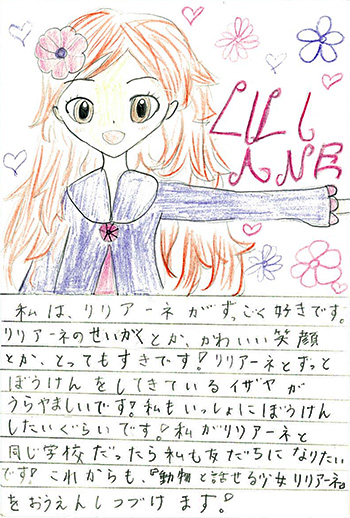 LILI
ANE
私は、リリアーネがすっごく好きです。
リリアーネのせいかくとか、かわいい笑顔
とか、とってもすきです!リリアーネとずっと
ぼうけんをしてきているイザヤが
うらやましいです!私もいっしょにぼうけん
したいぐらいです!私がリリアーネと
同じ学校だったら私も友だちになりたい
です!これからも、『動物と話せる少女リリアーネ』
をおうえんしつづけます!